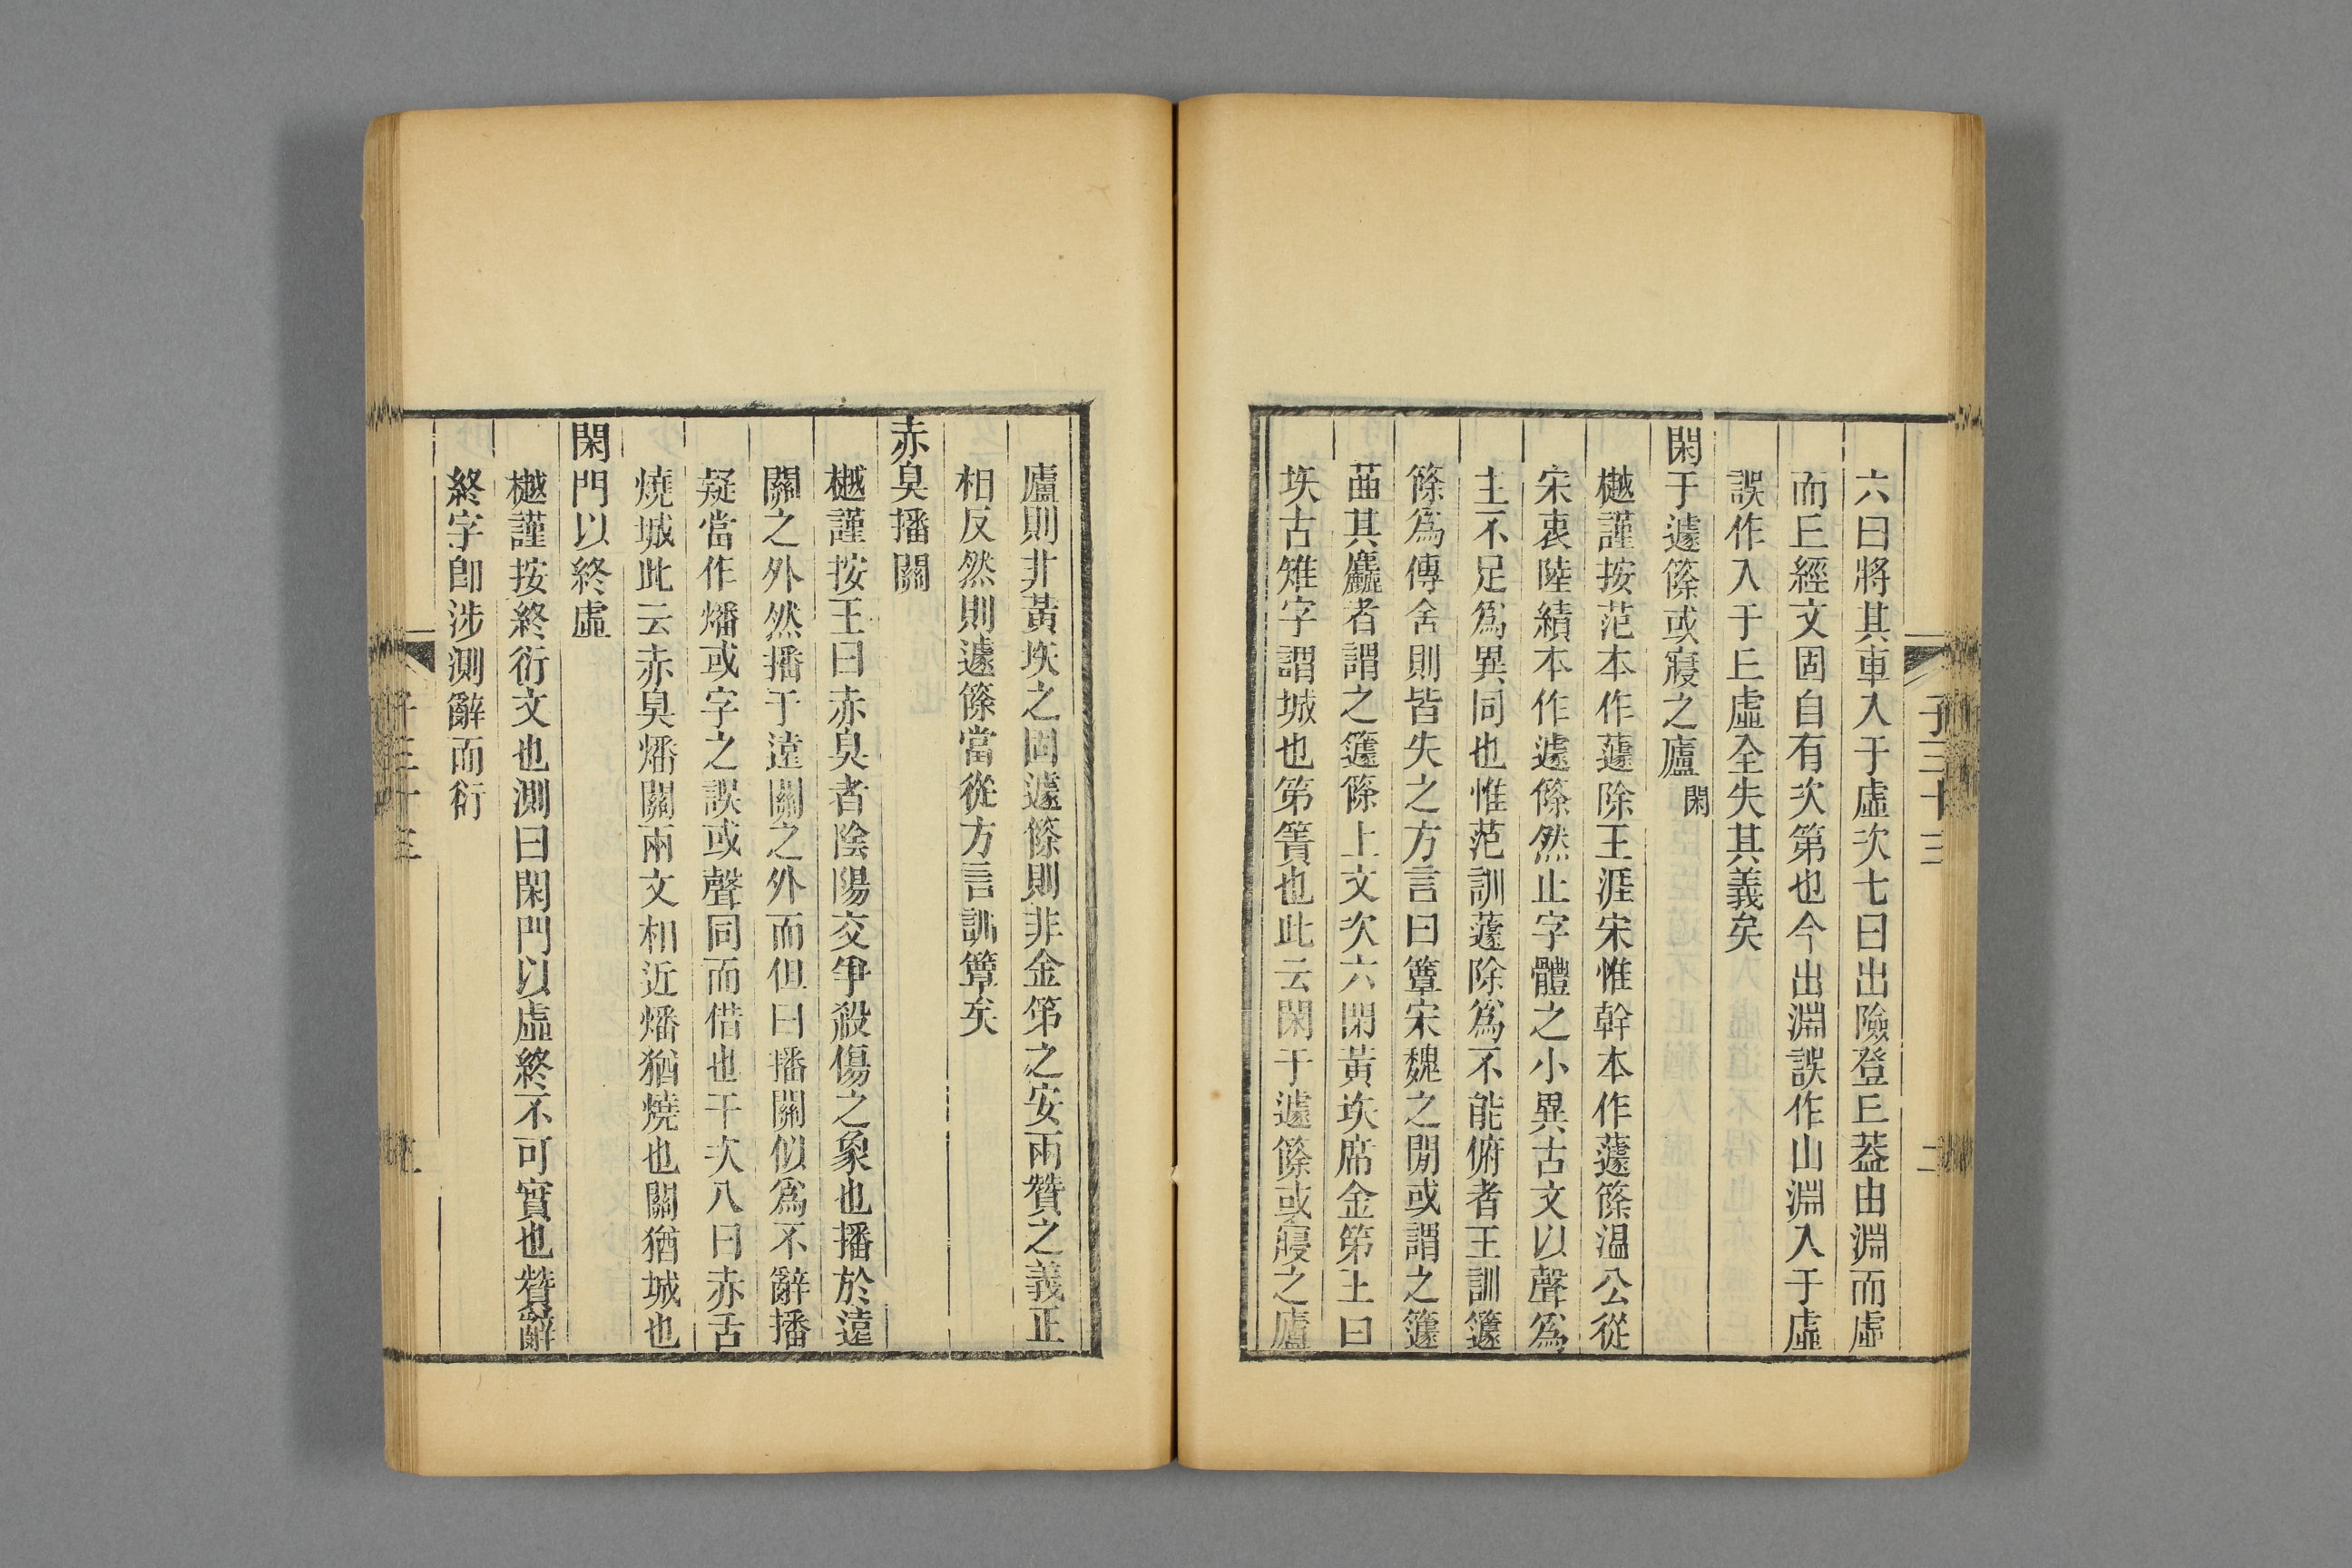 子三十三
二
六曰將其車入于虛次七曰出險登丘蓋由淵而虛
而丘經文固自有次第也今出淵誤作山淵入于虛
誤作入于丘虛全失其義矣
閑于遽篨或寢之廬閑
樾謹按范本作蘧除王涯宋惟幹本作蘧篨温公從
宋衷陸績本作遽篨然止字體之小異古文以聲爲
主不足爲異同也惟范訓蘧除爲不能俯者王訓籧
篨爲傳舍則皆失之方言曰簟宋魏之閒或謂之籧
䒼其麤者謂之籧篨上文次六閑黃垁席金第王曰
垁古雉字謂城也第簀也此云閑于遽篨或寢之廬
廬則非黃垁之固遽篨則非金第之安兩贊之義正
相反然則遽篨當從方言訓簟矣
赤臭播關
樾謹按王曰赤臭者陰陽交爭殺傷之象也播於遠
關之外然播于遠關之外而但曰播關似爲不辭播
疑當作燔或字之誤或聲同而借也干次八曰赤舌
燒城此云赤臭燔關兩文相近燔猶燒也關猶城也
閑門以終虛
樾謹按終衍文也測曰閑門以虛終不可實也贊辭
終字卽涉測辭而衍
子三十三